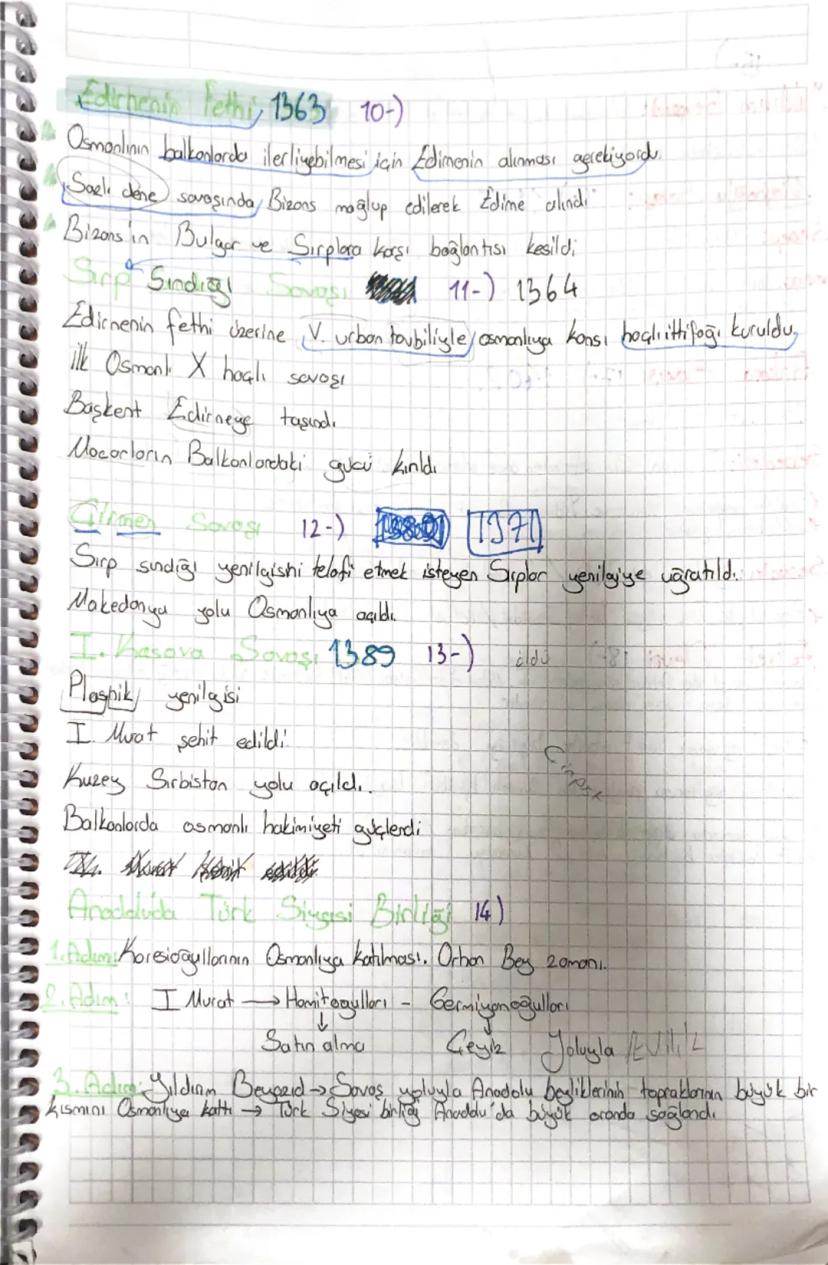 Edirnenin Fethi, 1363 10-)
Osmanlının balkanlarda ilerliyebilmesi için Edirnenin alınması gerekiyordu.
Sazlı dere savaşında, Bizans mağlup edilerek Edirne alındı
Bizans'ın Bulgar ve Sırplara karşı bağlantısı kesildi
Sırp Sındığı Savaşı 11-) 1364
Edirnenin fethi üzerine V. urban taubiliyle, osmanlıya karısı haçlı ittifağı kuruldu,
ilk Osmanlı X haçlı savaşı
Başkent Edirneye taşındı
Macarların Balkanlardaki gücü kırıldı
Çirmen Savaşı 12-) 1371
Sırp sındığı yenilgisini telafi etmek isteyen Sırplar yenilgiye uğratıldı.
Makedonya yolu Osmanlıya açıldı.
I. Kasova Savaşı 1389 13-) öldü
Ploşnik, yenilgisi
I. Murat şehit edildi
Kuzey Sırbistan yolu açıldı.
Balkanlarda osmanlı hakimiyeti güçlendi
Anadoluda Türk Siyasi Birliği 14)
1.Adım: Karesioğullarının Osmanlıya katılması. Orhan Bey zamanı.
2.Adım: I Murat → Hamitoğulları - Germiyanoğulları
Satın alma Çeyiz Yoluyla
3. Adım: Yıldırım Beyazid → Savaş yoluyla Anadolu beyliklerinin topraklarının büyük bir
kısmını Osmanlıya kattı → Türk Siyasi birliği Anadolu'da büyük oranda sağlandı